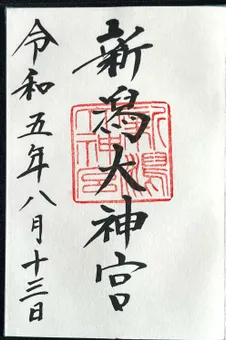 新潟大神宮
令和五年八月十三日